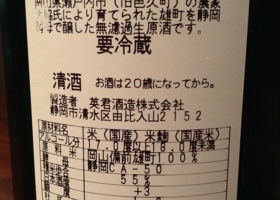 瀬戸内市（旧邑久町）の農家
氏により育てられた雄町を静岡
で醸した無濾過生原酒です。
要冷蔵
清酒 お酒は20歳になってから。
製造者 英君酒造株式会社
静岡市清水区由比入山2152
原材料名 米（国産）米麹（国産米）
アルコール分 17.0度以上18.0度未満
原料米 岡山備前雄町100%
静岡CA-50
55%
+3